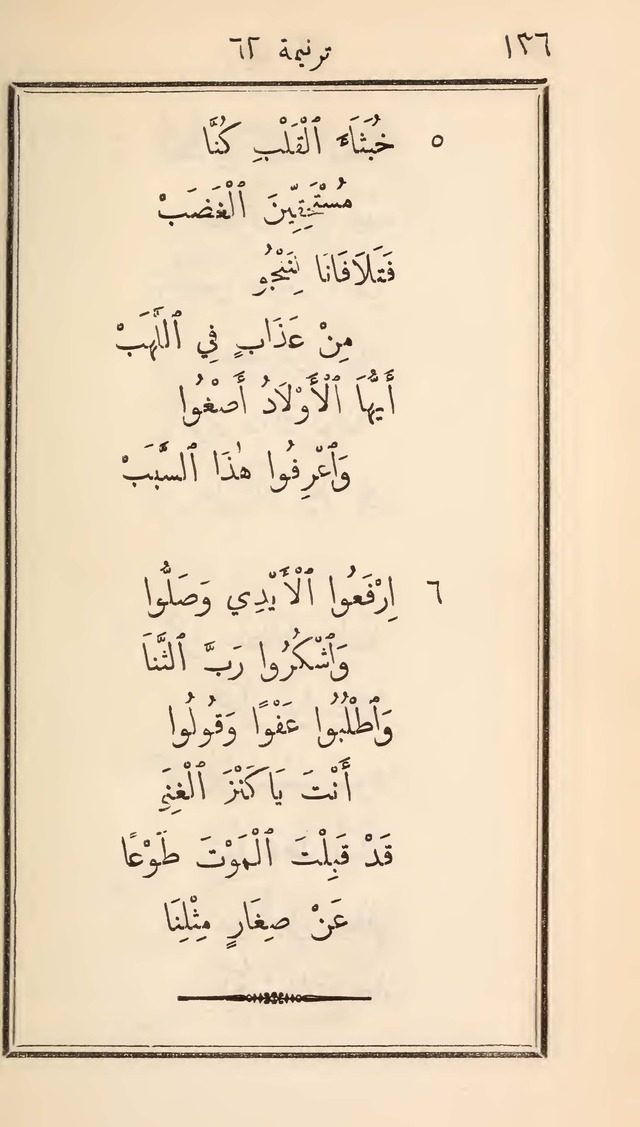 ١٣٦ ترنيمة ٦٢
٥ خُبَثَاءَ ٱلْقَلْبِ كُنَّا
مُسْتَحِقِّينَ ٱلْغَضَبْ
فَتَلَافَانَا لِنَنْجُو
مِنْ عَذَابٍ فِي ٱللَّهَبْ
أَيُّهَا ٱلْأَوْلَادُ أَصْغُوا
وَٱعْرِفُوا هٰذَا ٱلسَّبَبْ
٦ اِرْفَعُوا ٱلْأَيْدِي وَصَلُّوا
وَٱشْكُرُوا رَبَّ ٱلثَّنَا
وَٱطْلُبُوا عَفْوًا وَقُولُوا
أَنْتَ يَا كَنْزَ ٱلْغِنَى
قَدْ قَبِلْتَ ٱلْمَوْتَ طَوْعًا
عَنْ صِغَارٍ مِثْلِنَا